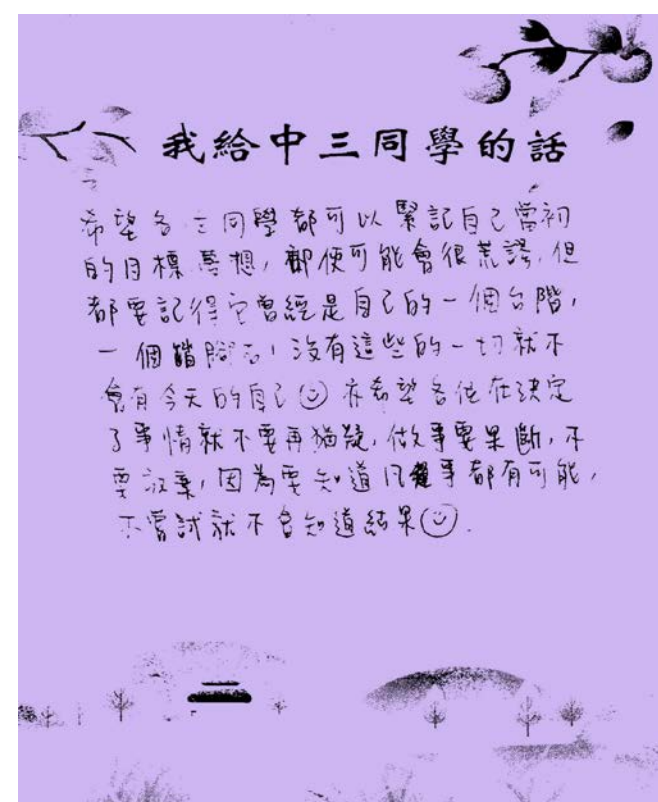 我給中三同學的話
希望各位同學都可以緊記自己當初
的目標夢想，即使可能會很荒謬，但
都要記得它曾經是自己的一個台階，
一個踏腳石，沒有這些的一切就不
會有今天的自己☺亦希望各位在決定
了事情就不要再猶疑，做事要果斷，不
要放棄，因為要知道凡事都有可能，
不嘗試就不會知道結果☺.